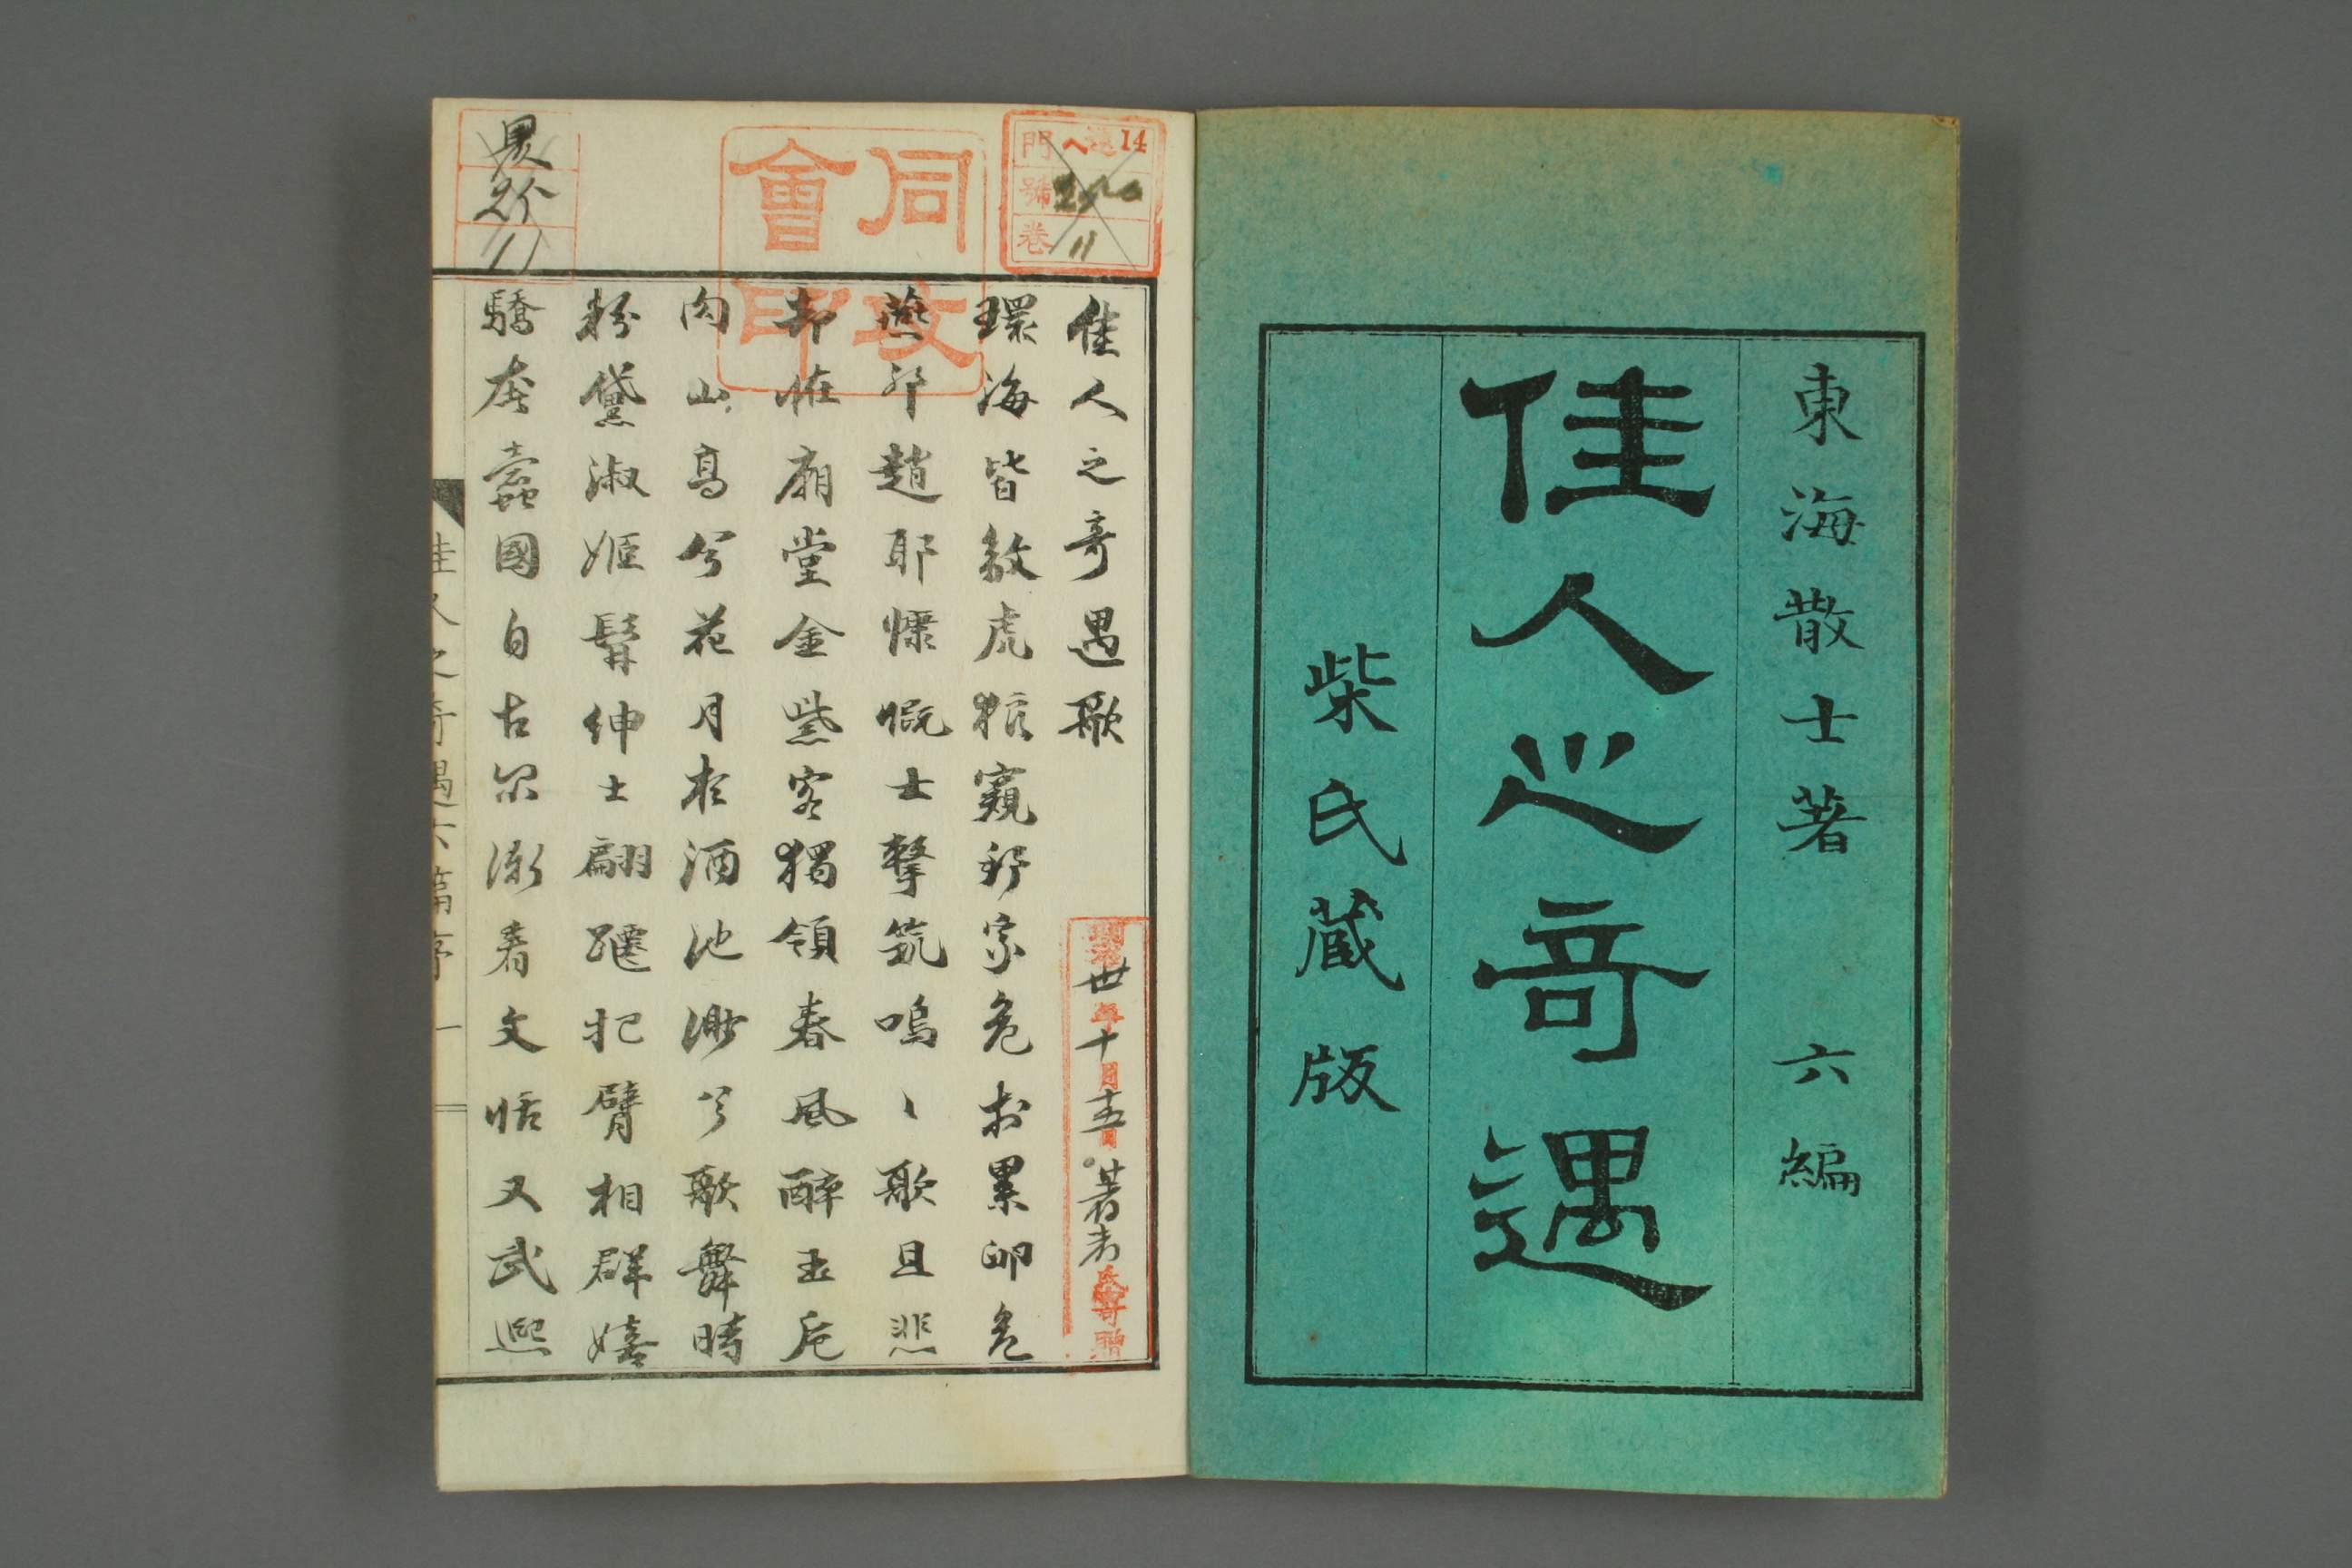 東海散士著 六編
佳人之奇遇
柴氏蔵版
門 14
號
巻 11
同
會
印
佳人之奇遇歌
環海皆敵虎狼窺 邦家危於累卵危
燕耶趙耶慷慨士 擊筑嗚〻歌且悲
却怪廟堂金紫客 獨領春風醉玉卮
肉山高兮花月 酒池渺兮歌舞時
粉黛淑姬髯紳士 翩躚把臂相群嬉
驕奢蠹國自古尔 漸看文恬又武熙
明治卅年十月十五日著者氏寄贈
佳人之奇遇六篇序 一
11